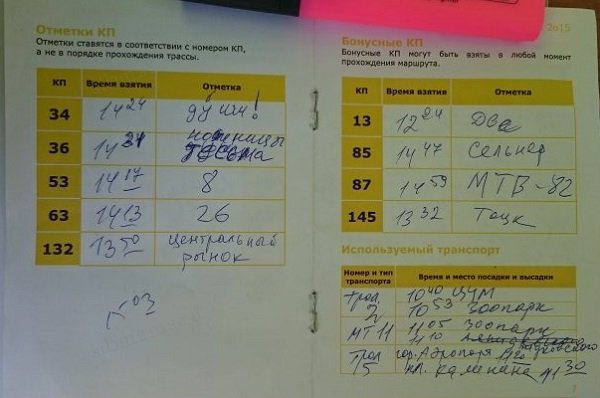 Отметки КП
Отметки ставятся в соответствии с номером КП,
а не в порядке прохождения трассы.
КП Время взятия Отметка
34 14 24 души!
36 14 34 ножницы
53 14 17 8
63 14 13 26
132 13 50 центральный
рынок
15 03
2015
Бонусные КП
Бонусные КП могут быть взяты в любой момент
прохождения маршрута.
КП Время взятия Отметка
13 12 24 Два
85 14 47 Сельнер
87 14 59 МТВ-82
145 13 32 Тоцк
Используемый транспорт
Номер и тип Время и место посадки и высадки
транспорта
трол. 10 40 ЦУМ
2 10 53 Зоопарк
МТ 11 11 05 Зоопарк
11 10
Трол гор. Аэропорт 11 20
5 пл. Калинина 11 30